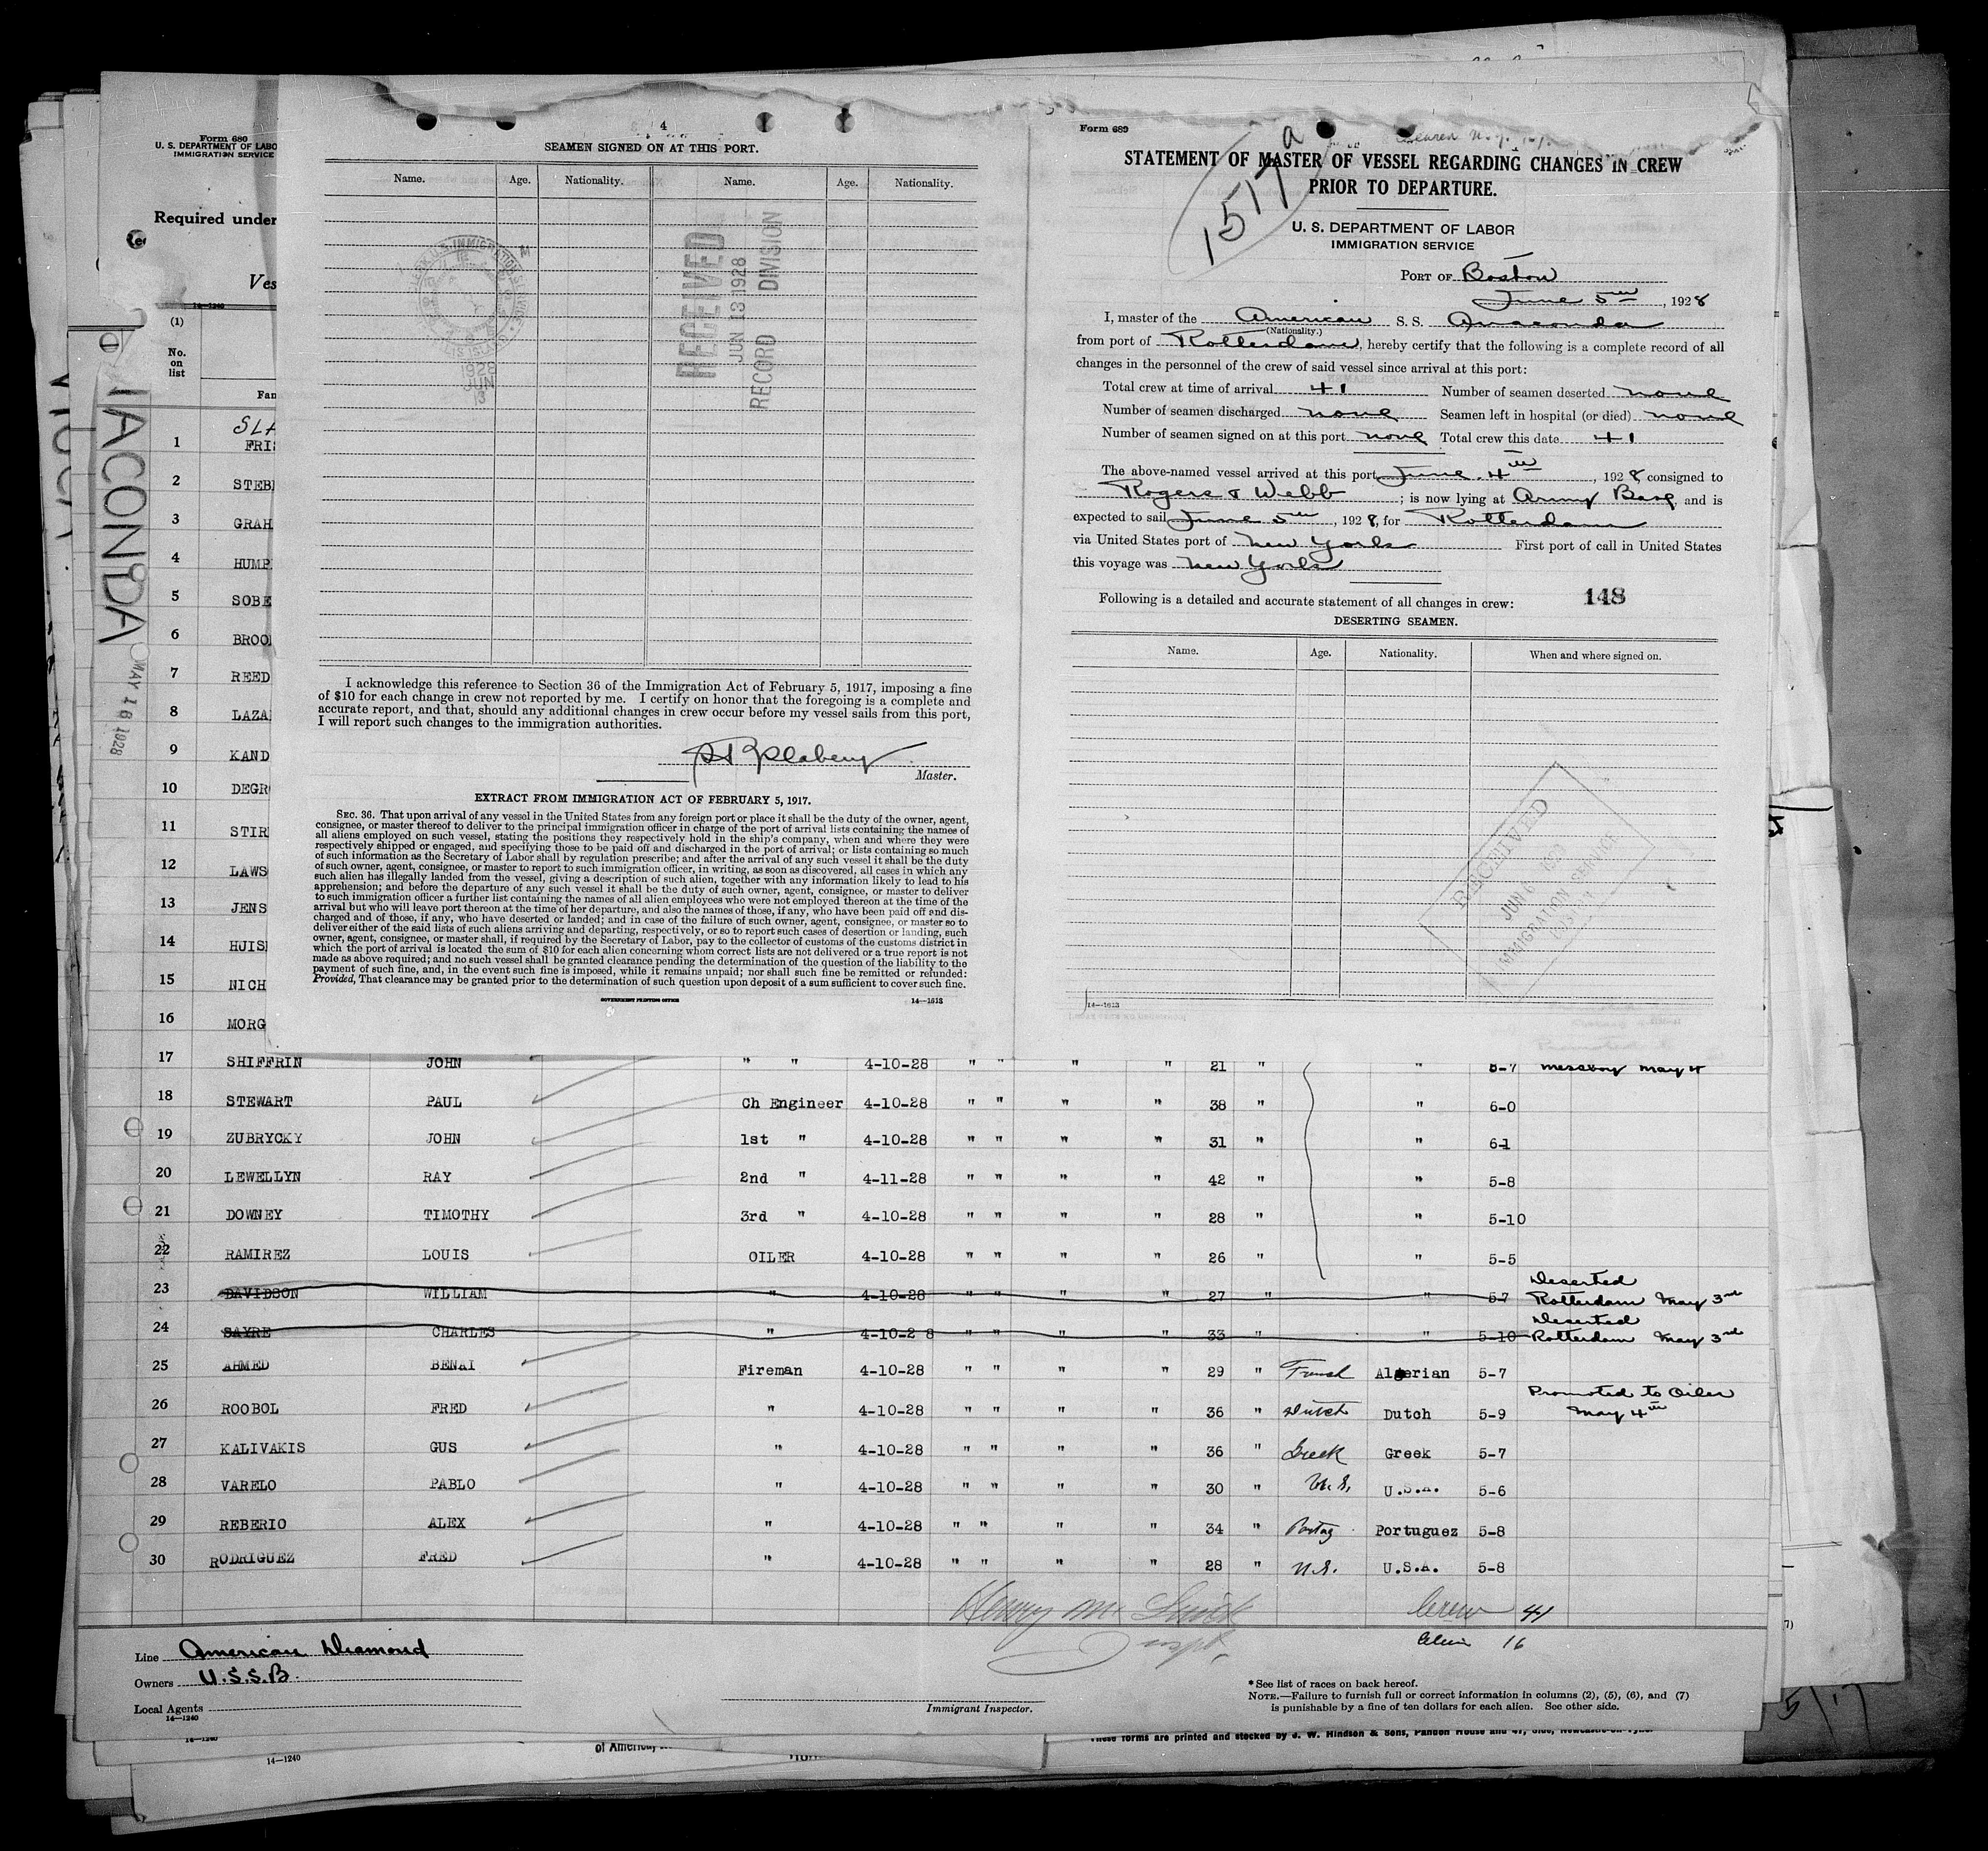 Form 689
U. S. DEPARTMENT OF LABO
IMMIGRATION SERVICE
Required under
Ves
14—1240
(1)
No.
on
list
Fam
ACONDA
MAY 16 1928
1 SLA
FRIS
2 STEB
3 GRAH
4 HUMP
5 SOBE
6 BROO
7 REED
8 LAZA
9 KAND
10 DEGR
11 STIR
12 LAWS
13 JENS
14 HUIS
15 NICH
16 MORG
4
SEAMEN SIGNED ON AT THIS PORT.
Name. Age. Nationality. Name. Age. Nationality.
RECEIVED
JUN 13 1928
RECORD DIVISION
1928
JUN
13
I acknowledge this reference to Section 36 of the Immigration Act of February 5, 1917, imposing a fine
of $10 for each change in crew not reported by me. I certify on honor that the foregoing is a complete and
accurate report, and that, should any additional changes in crew occur before my vessel sails from this port,
I will report such changes to the immigration authorities.
Master.
EXTRACT FROM IMMIGRATION ACT OF FEBRUARY 5, 1917.
SEC. 36. That upon arrival of any vessel in the United States from any foreign port or place it shall be the duty of the owner, agent,
consignee, or master thereof to deliver to the principal immigration officer in charge of the port of arrival lists containing the names of
all aliens employed on such vessel, stating the positions they respectively hold in the ship's company, when and where they were
respectively shipped or engaged, and specifying those to be paid off and discharged in the port of arrival; or lists containing so much
of such information as the Secretary of Labor shall by regulation prescribe; and after the arrival of any such vessel it shall be the duty
of such owner, agent, consignee, or master to report to such immigration officer, in writing, as soon as discovered, all cases in which any
such alien has illegally landed from the vessel, giving a description of such alien, together with any information likely to lead to his
apprehension; and before the departure of any such vessel it shall be the duty of such owner, agent, consignee, or master to deliver
to such immigration officer a further list containing the names of all alien employees who were not employed thereon at the time of the
arrival but who will leave port thereon at the time of her departure, and also the names of those, if any, who have been paid off and dis-
charged and of those, if any, who have deserted or landed; and in case of the failure of such owner, agent, consignee, or master so to
deliver either of the said lists of such aliens arriving and departing, respectively, or so to report such cases of desertion or landing, such
owner, agent, consignee, or master shall, if required by the Secretary of Labor, pay to the collector of customs of the customs district in
which the port of arrival is located the sum of $10 for each alien concerning whom correct lists are not delivered or a true report is not
made as above required; and no such vessel shall be granted clearance pending the determination of the question of the liability to the
payment of such fine, and, in the event such fine is imposed, while it remains unpaid; nor shall such fine be remitted or refunded:
Provided, That clearance may be granted prior to the determination of such question upon deposit of a sum sufficient to cover such fine.
GOVERNMENT PRINTING OFFICE 14—1613
Form 689
1517 a
STATEMENT OF MASTER OF VESSEL REGARDING CHANGES IN CREW
PRIOR TO DEPARTURE.
U. S. DEPARTMENT OF LABOR
IMMIGRATION SERVICE
PORT OF Boston
June 5th, 1928
I, master of the American S. S. Anaconda
(Nationality.)
from port of Rotterdam, hereby certify that the following is a complete record of all
changes in the personnel of the crew of said vessel since arrival at this port:
Total crew at time of arrival 41 Number of seamen deserted none
Number of seamen discharged none Seamen left in hospital (or died) none
Number of seamen signed on at this port none Total crew this date 41
The above-named vessel arrived at this port June 4th, 1928, consigned to
Rogers & Webb; is now lying at Army Base, and is
expected to sail June 5th, 1928, for Rotterdam
via United States port of New York First port of call in United States
this voyage was New York
Following is a detailed and accurate statement of all changes in crew: 148
DESERTING SEAMEN.
Name. Age. Nationality. When and where signed on.
RECEIVED
JUN
IMMIGRATION SERVICE
BOSTON
14—1613
17 SHIFFRIN JOHN " " 4-10-28 " " " " 21 " " 5-7 messboy May 4
18 STEWART PAUL Ch Engineer 4-10-28 " " " " 38 " " 6-0
19 ZUBRYCKY JOHN 1st " 4-10-28 " " " " 31 " " 6-1
20 LEWELLYN RAY 2nd " 4-11-28 " " " " 42 " " 5-8
21 DOWNEY TIMOTHY 3rd " 4-10-28 " " " " 28 " " 5-10
22 RAMIREZ LOUIS OILER 4-10-28 " " " " 26 " " 5-5
23 DAVIDSON WILLIAM " 4-10-28 " " " " 27 " " 5-7 Deserted
Rotterdam May 3rd
24 SAYRE CHARLES " 4-10-2 8 " " " " 33 " " 5-10 Deserted
Rotterdam May 3rd
25 AHMED BENAI Fireman 4-10-28 " " " " 29 " French Algerian 5-7
26 ROOBOL FRED " 4-10-28 " " " " 36 " Dutch Dutch 5-9 Promoted to Oiler
May 4th
27 KALIVAKIS GUS " 4-10-28 " " " " 36 " Greek Greek 5-7
28 VARELO PABLO " 4-10-28 " " " " 30 " U.S. U.S.A. 5-6
29 REBERIO ALEX " 4-10-28 " " " " 34 " Portug Portuguez 5-8
30 RODRIGUEZ FRED " 4-10-28 " " " " 28 " U.S. U.S.A. 5-8
Crew 41
16
Line American Diamond
Owners U.S.S.B.
Local Agents
14—1240
Immigrant Inspector.
*See list of races on back hereof.
NOTE.—Failure to furnish full or correct information in columns (2), (5), (6), and (7)
is punishable by a fine of ten dollars for each alien. See other side.
14—1240
of America,
These forms are printed and stocked by J. W. Hindson & Sons, Pandon House and 47, Side, Newcastle-on-Tyne.